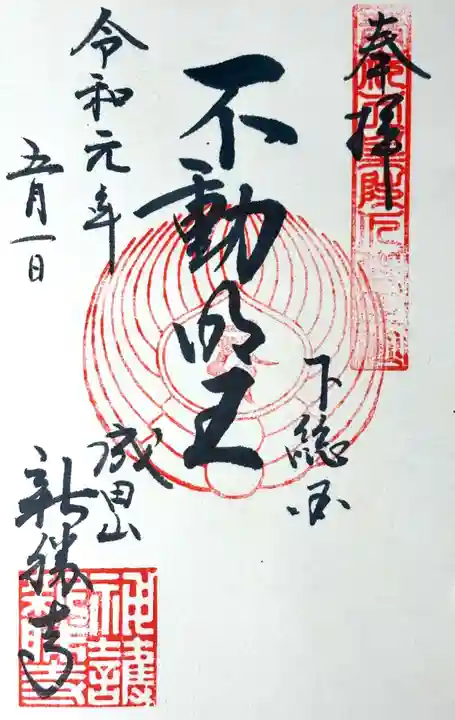 奉拝
下総国
不動明王
令和元年
五月一日
成田山
新勝寺